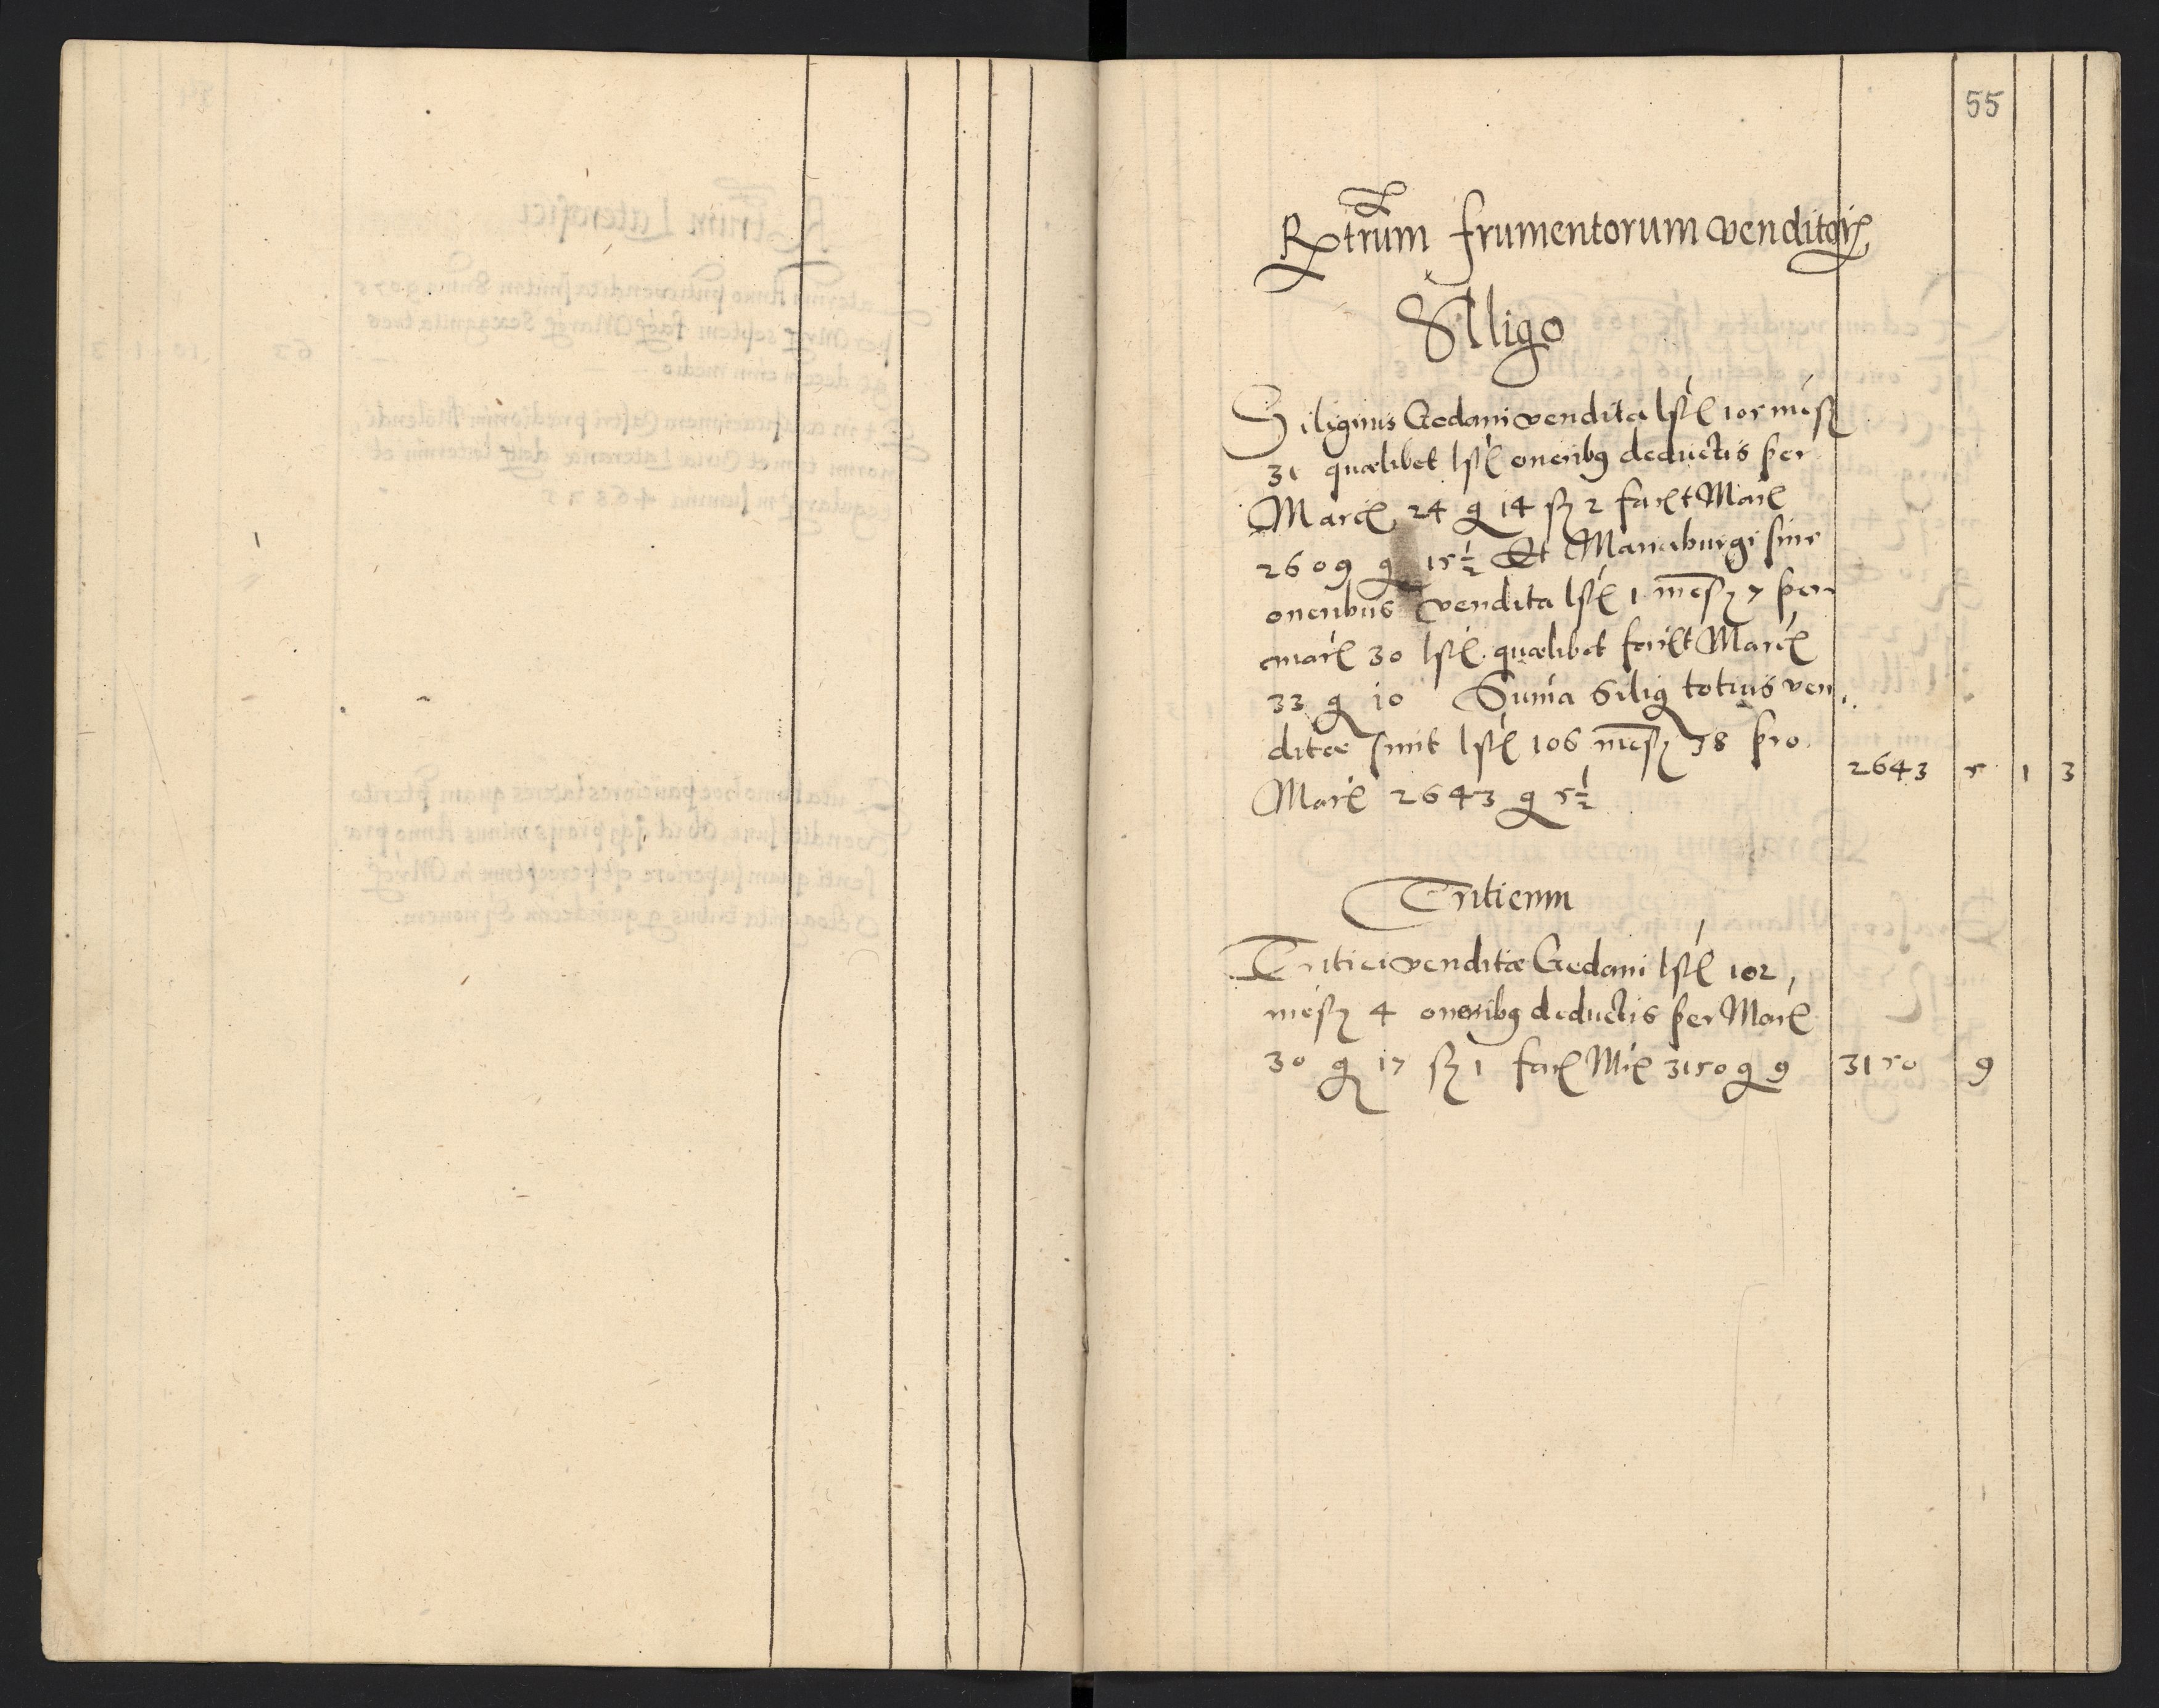 55
Rtrum frumentorum venditor
Siligo
Siliginis Gedani vendita lst 105 mes
31 quælibet lst oneribus deductis per
Marc 24 g 14 sz 2 facit Marc
2609 g 15½ Et Mariaburgi sine
oneribus vendita lst 1 mesz 7 per
marc 30 lst quælibet facit Marc
33 g 10 Suma Silig totius ven
ditæ sunt lst 106 mesz 38 pro
Marc 2643 g 5½
2643 5 1 3
Triticum
Tritici venditæ Gedani lst 102
mesz 4 oneribus deductis per Marc
30 g 17 sz 1 fac Mrc 3150 g 9 3150 9